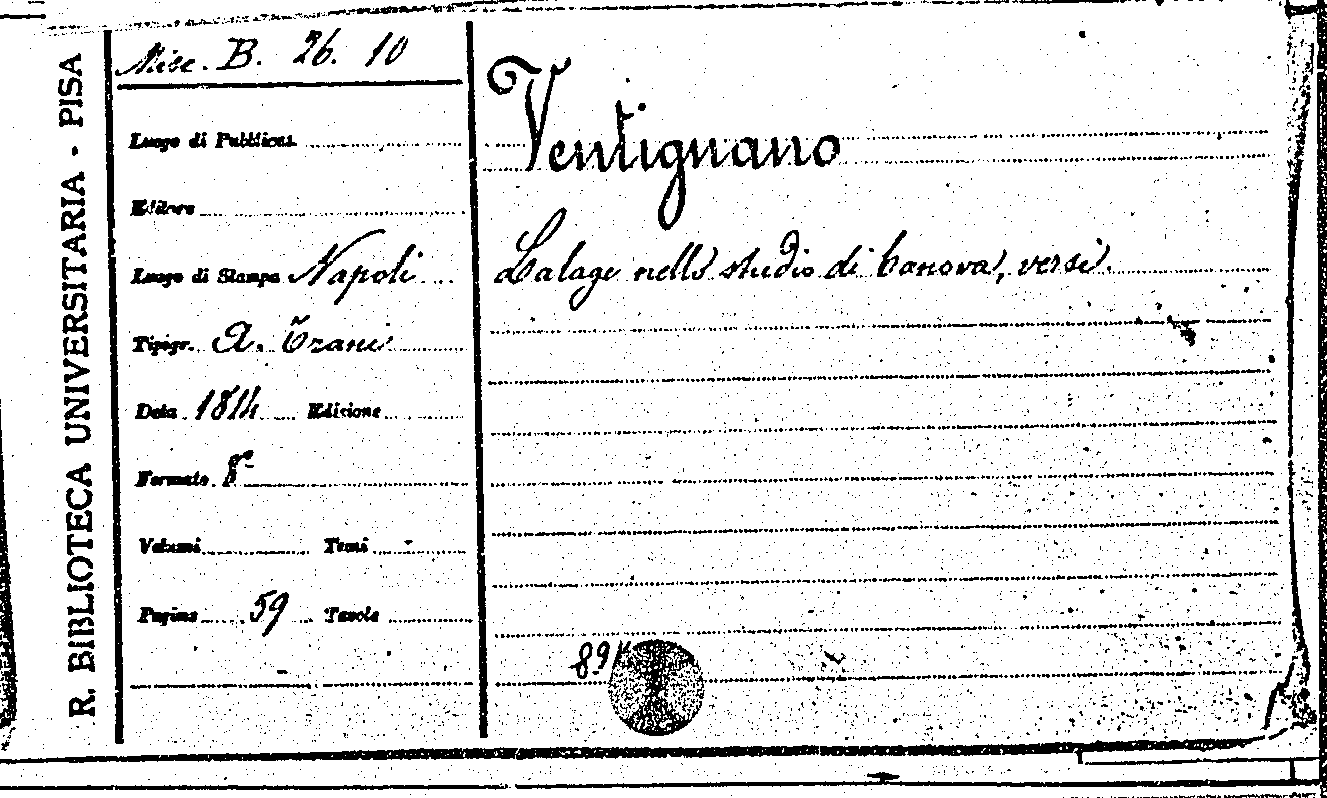 R. BIBLIOTECA UNIVERSITARIA - PISA
Misc. B. 26. 10
Luogo di Pubblicaz.
Editore
Luogo di Stampa Napoli
Tipogr. A. Trani
Data 1814 Edizione
Formato 8°
Volumi Tomi
Pagine 59 Tavole
Ventignano
Lalage nello studio di Canova, versi.